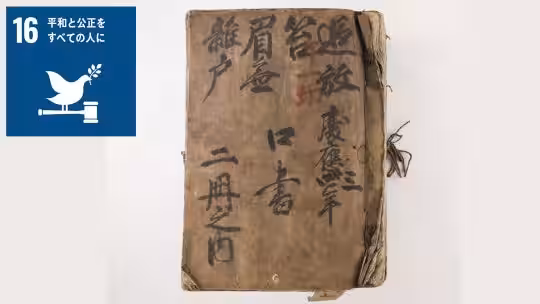 16
平和と公正を
すべての人に
追放
笞
眉
戸
慶應三年
口書
二冊之内